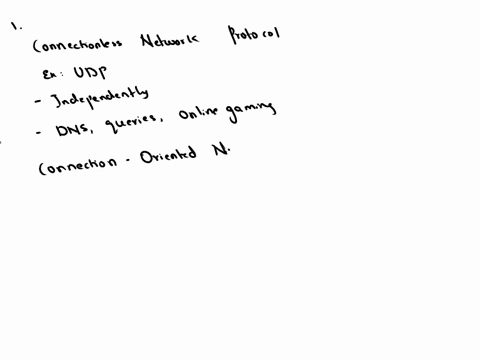 1.
Connectionless Network Protocol
Ex: UDP
- Independently
- DNS, queries, Online gaming
Connection - Oriented N.